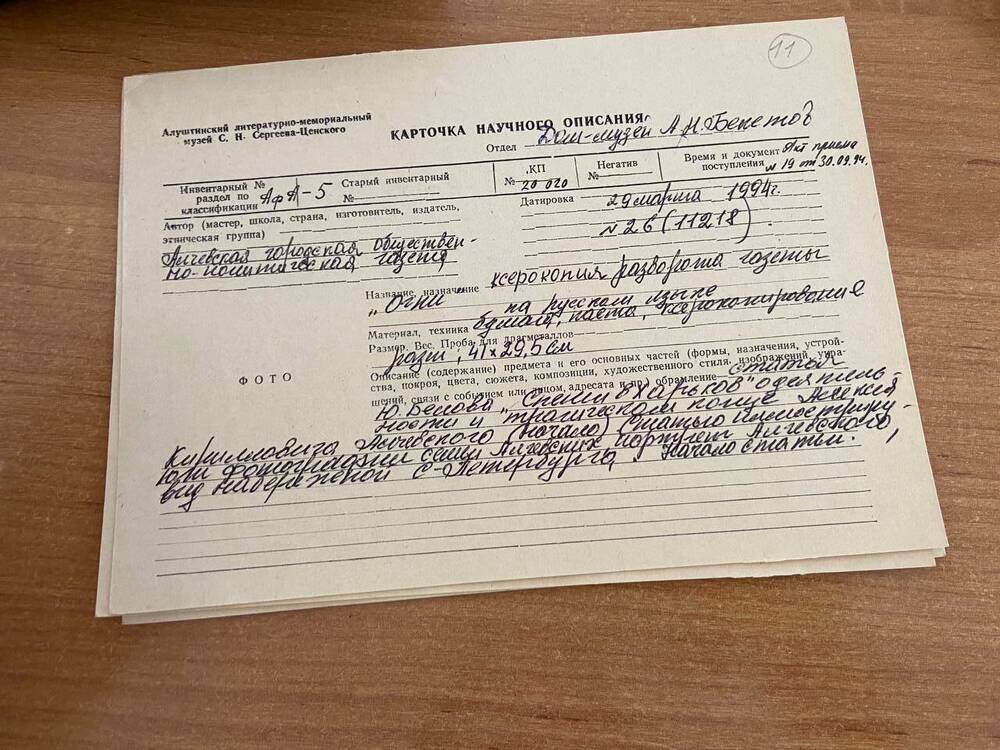 11
Алуштинский литературно-мемориальный
музей С. Н. Сергеева-Ценского
КАРТОЧКА НАУЧНОГО ОПИСАНИЯ
Отдел Дом-музей А.Н. Бекетов
Инвентарный №
раздел по
классификации АфА-5
Старый инвентарный
№
КП
№ 20 020
Негатив
№
Время и документ
поступления Акт приема
№ 19 от 30.09.94.
Автор (мастер, школа, страна, изготовитель, издатель,
этническая группа)
Алчевская городская обществен-
но-политическая газета
Датировка 29 марта 1994г.
№ 26 (11218)
Название, назначение ксерокопия разворота газеты
„Огни" на русском языке
Материал, техника бумага, паста, ксерокопирование
Размер. Вес. Проба для драгметаллов
разм., 41 х 29,5 см
Описание (содержание) предмета и его основных частей (формы, назначения, устрой-
ства, покроя, цвета, сюжета, композиции, художественного стиля, изображений, укра-
шений, связи с событием или лицом, адресата и пр.) обрамление статья
ФОТО
Ю. Белова „Спешив Харьков" о деятель-
ности и трагическом конце Алексея
Кирилловича Алчевского (начало) Статью иллюстриру-
ют фотографии семьи Алчевских портрет Алчевского,
вид набережной С-Петербурга. Начало статьи.